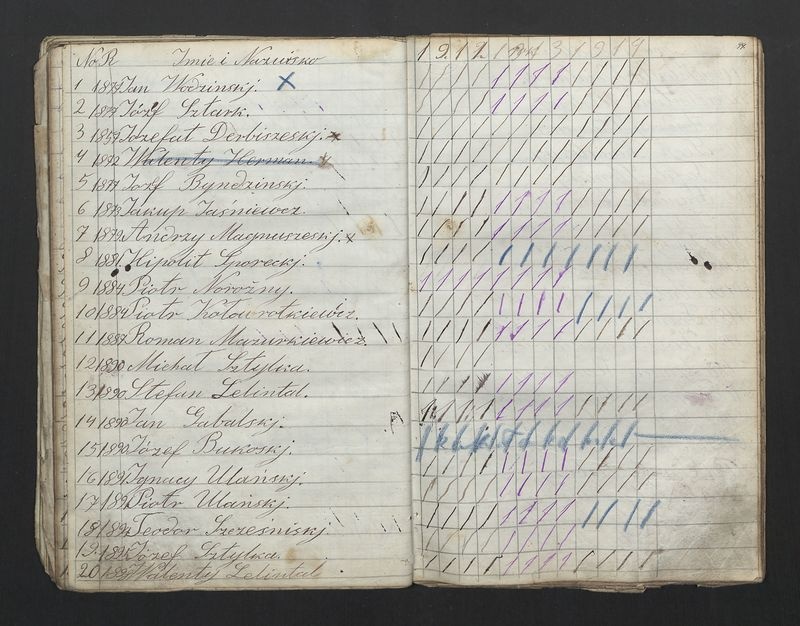 No R Imie i Nazwisko
1 1889 Jan Wodzinskj.
2 Józef Sztark.
3 1859 Józefat Derbiszeskj.
4 1892 Walenty Herman.
5 1877 Józf Byndzinskj.
6 1873 Jakup Jaśniewcz.
7 1879 Andrzy Magnuszeskj.
8 1881 Hipolit Snoreckj.
9 1884 Piotr Norożny.
10 1889 Piotr Kołowrotkiewicz.
11 1888 Roman Mazurkiewicz.
12 1890 Michał Sztylka.
13 1890 Stefan Lelintal.
14 1890 Jan Gabalskj.
15 1890 Józef Bukoskj.
16 189 Jgnacy Ulańskj.
17 189 Piotr Ulańskj.
18 1892 Teodor Szcześniskj.
19 1895 Józef Sztylka.
20 Walenty Lelintal
1917. 1918 1919